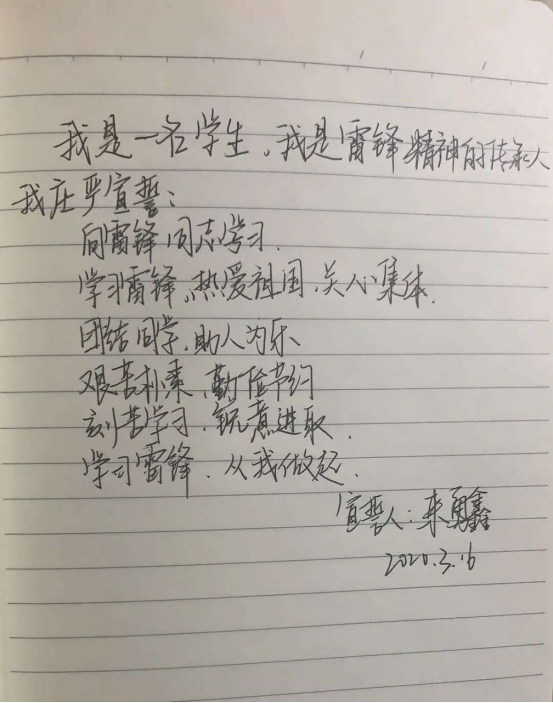 我是一名学生,我是雷锋精神的传承人
我庄严宣誓:
向雷锋同志学习.
学习雷锋,热爱祖国,关心集体.
团结同学,助人为乐
艰苦朴素,勤俭节约
刻苦学习,锐意进取.
学习雷锋.从我做起.
宣誓人:来勇鑫
2020.3.16